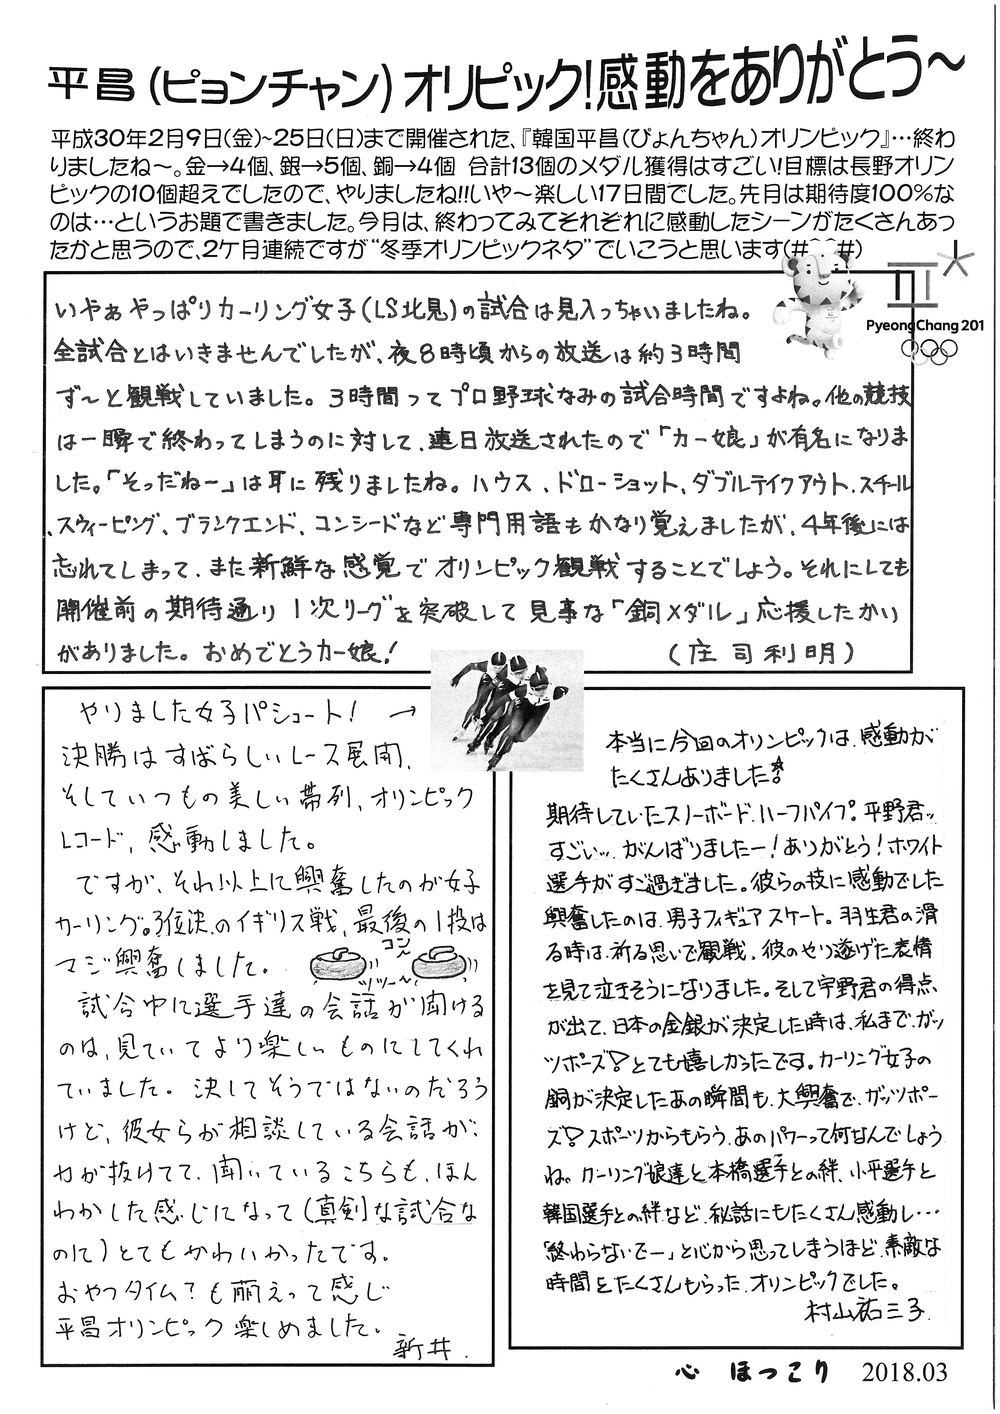 平昌(ピョンチャン)オリピック!感動をありがとう～
平成30年2月9日(金)~25日(日)まで開催された、『韓国平昌(ぴょんちゃん)オリンピック』…終わ
りましたね～。金→4個、銀→5個、銅→4個 合計13個のメダル獲得はすごい!目標は長野オリン
ピックの10個超えでしたので、やりましたね!!いや～楽しい17日間でした。先月は期待度100%な
のは…というお題で書きました。今月は、終わってみてそれぞれに感動したシーンがたくさんあっ
たかと思うので、2ケ月連続ですが“冬季オリンピックネタ”でいこうと思います(#^^#)
PyeongChang 201
いやぁやっぱりカーリング女子(LS北見)の試合は見入っちゃいましたね。
全試合とはいきませんでしたが、夜8時頃からの放送は約3時間
ず～と観戦していました。3時間ってプロ野球なみの試合時間ですよね。他の競技
は一瞬で終わってしまうのに対して、連日放送されたので「カー娘」が有名になりま
した。「そっだねー」は耳に残りましたね。ハウス、ドローショット、ダブルテイクアウト、スチール
、スウィーピング、ブランクエンド、コンシードなど専門用語もかなり覚えましたが、4年後には
忘れてしまって、また新鮮な感覚でオリンピック観戦することでしょう。それにしても
開催前の期待通り1次リーグを突破して見事な「銅メダル」応援したかい
がありました。おめでとうカー娘!
(庄司利明)
やりました女子パシュート! →
決勝はすばらしいレース展開、
そしていつもの美しい帯列、オリンピック
レコード、感動しました。
ですが、それ以上に興奮したのが女子
カーリング。3位決.のイギリス戦、最後の1投は
マジ興奮しました。
コン
ツツー～
試合中に選手達の会話が聞ける
のは、見ていてより楽しいものにしてくれ
ていました。決してそうではないのだろう
けど、彼女らが相談している会話が、
力が抜けてて、聞いているこちらも、ほん
わかした感じになって(真剣な試合な
のに)とてもかわいかったです。
おやつタイム?も萌えって感じ
平昌オリンピック楽しめました。
新井.
本当に今回のオリンピックは、感動が
たくさんありました!
期待していたスノーボード、ハーフパイプ。平野君ッ
すごいッ、がんばりましたー!ありがとう!ホワイト
選手がすご過ぎました。彼らの技に感動でした
興奮したのは、男子フィギュアスケート。羽生君の滑
る時は、祈る思いで観戦、彼のやり遂げた表情
を見て泣きそうになりました。そして宇野君の得点
が出て、日本の金銀が決定した時は、私まで、ガッ
ツポーズ!とても嬉しかったです。カーリング女子の
銅が決定したあの瞬間も、大興奮で、ガッツポー
ズ!スポーツからもらう、あのパワーって何なんでしょう
ね。カーリング娘達と本橋選手との絆、小平選手と
韓国選手との絆など、秘話にもたくさん感動し…
「終わらないでー」と心から思ってしまうほど、素敵な
時間をたくさんもらった、オリンピックでした。
村山祐三子.
心 ほっこり 2018.03